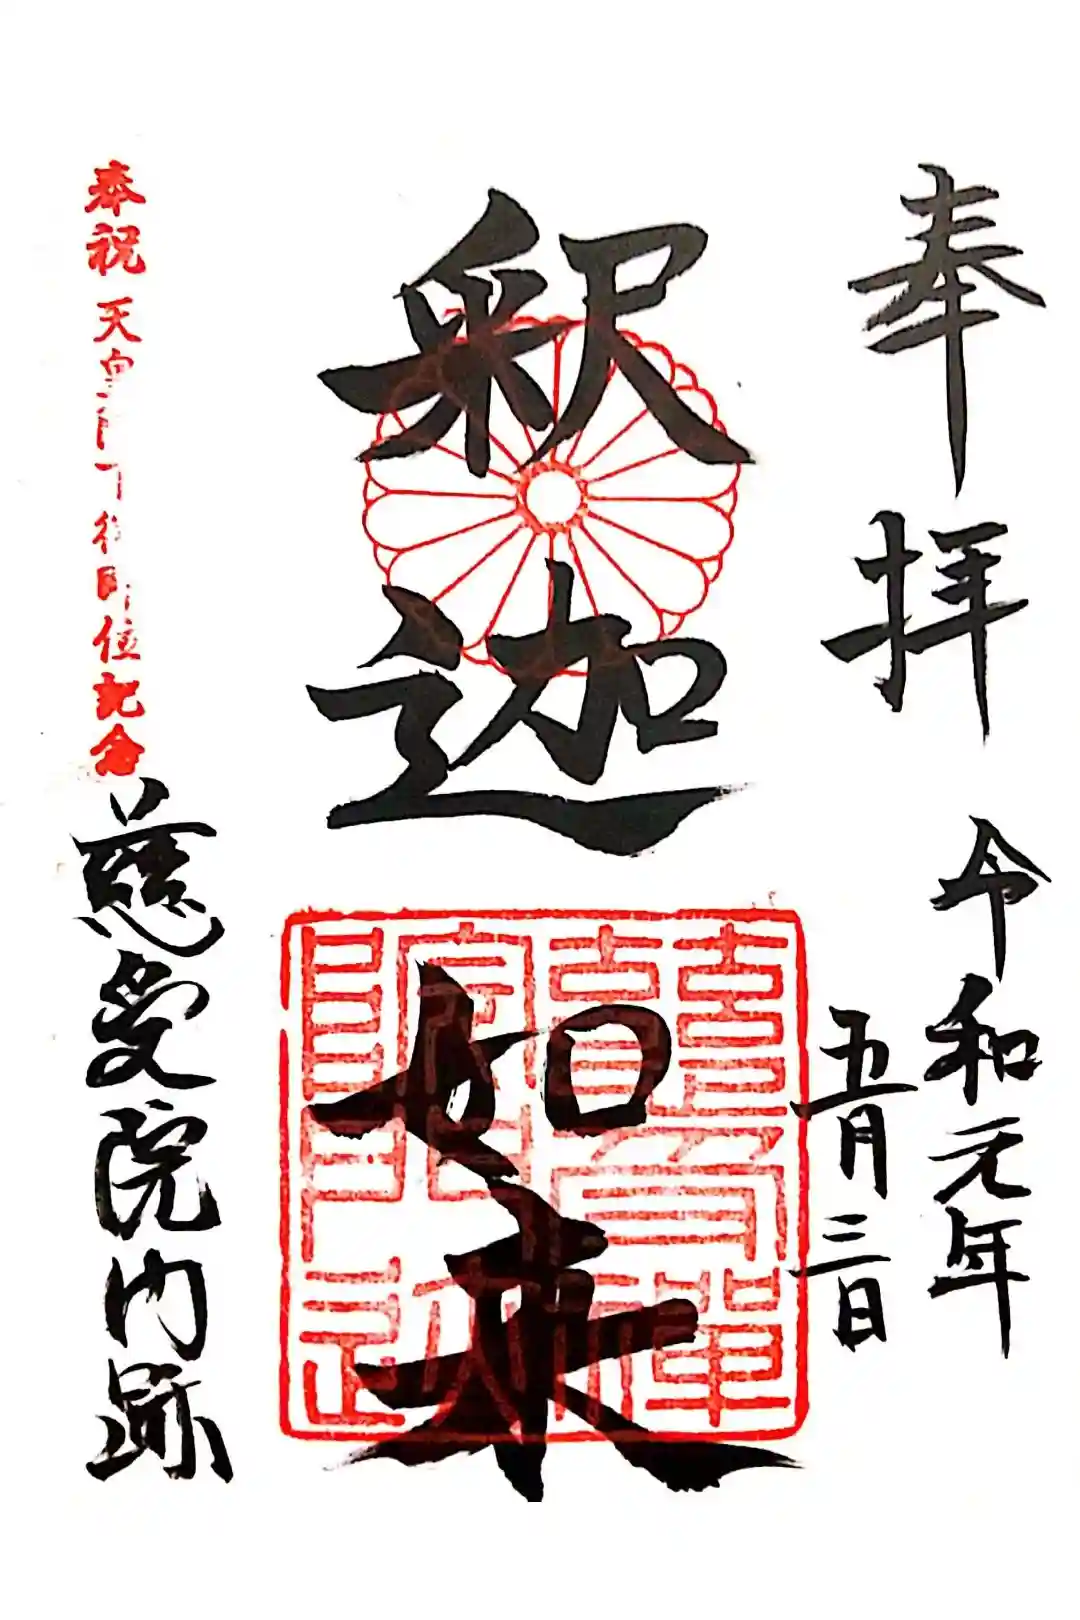 奉拝
令和元年
五月三日
釈迦如来
奉祝 天皇陛下御即位記念
慈受院門跡